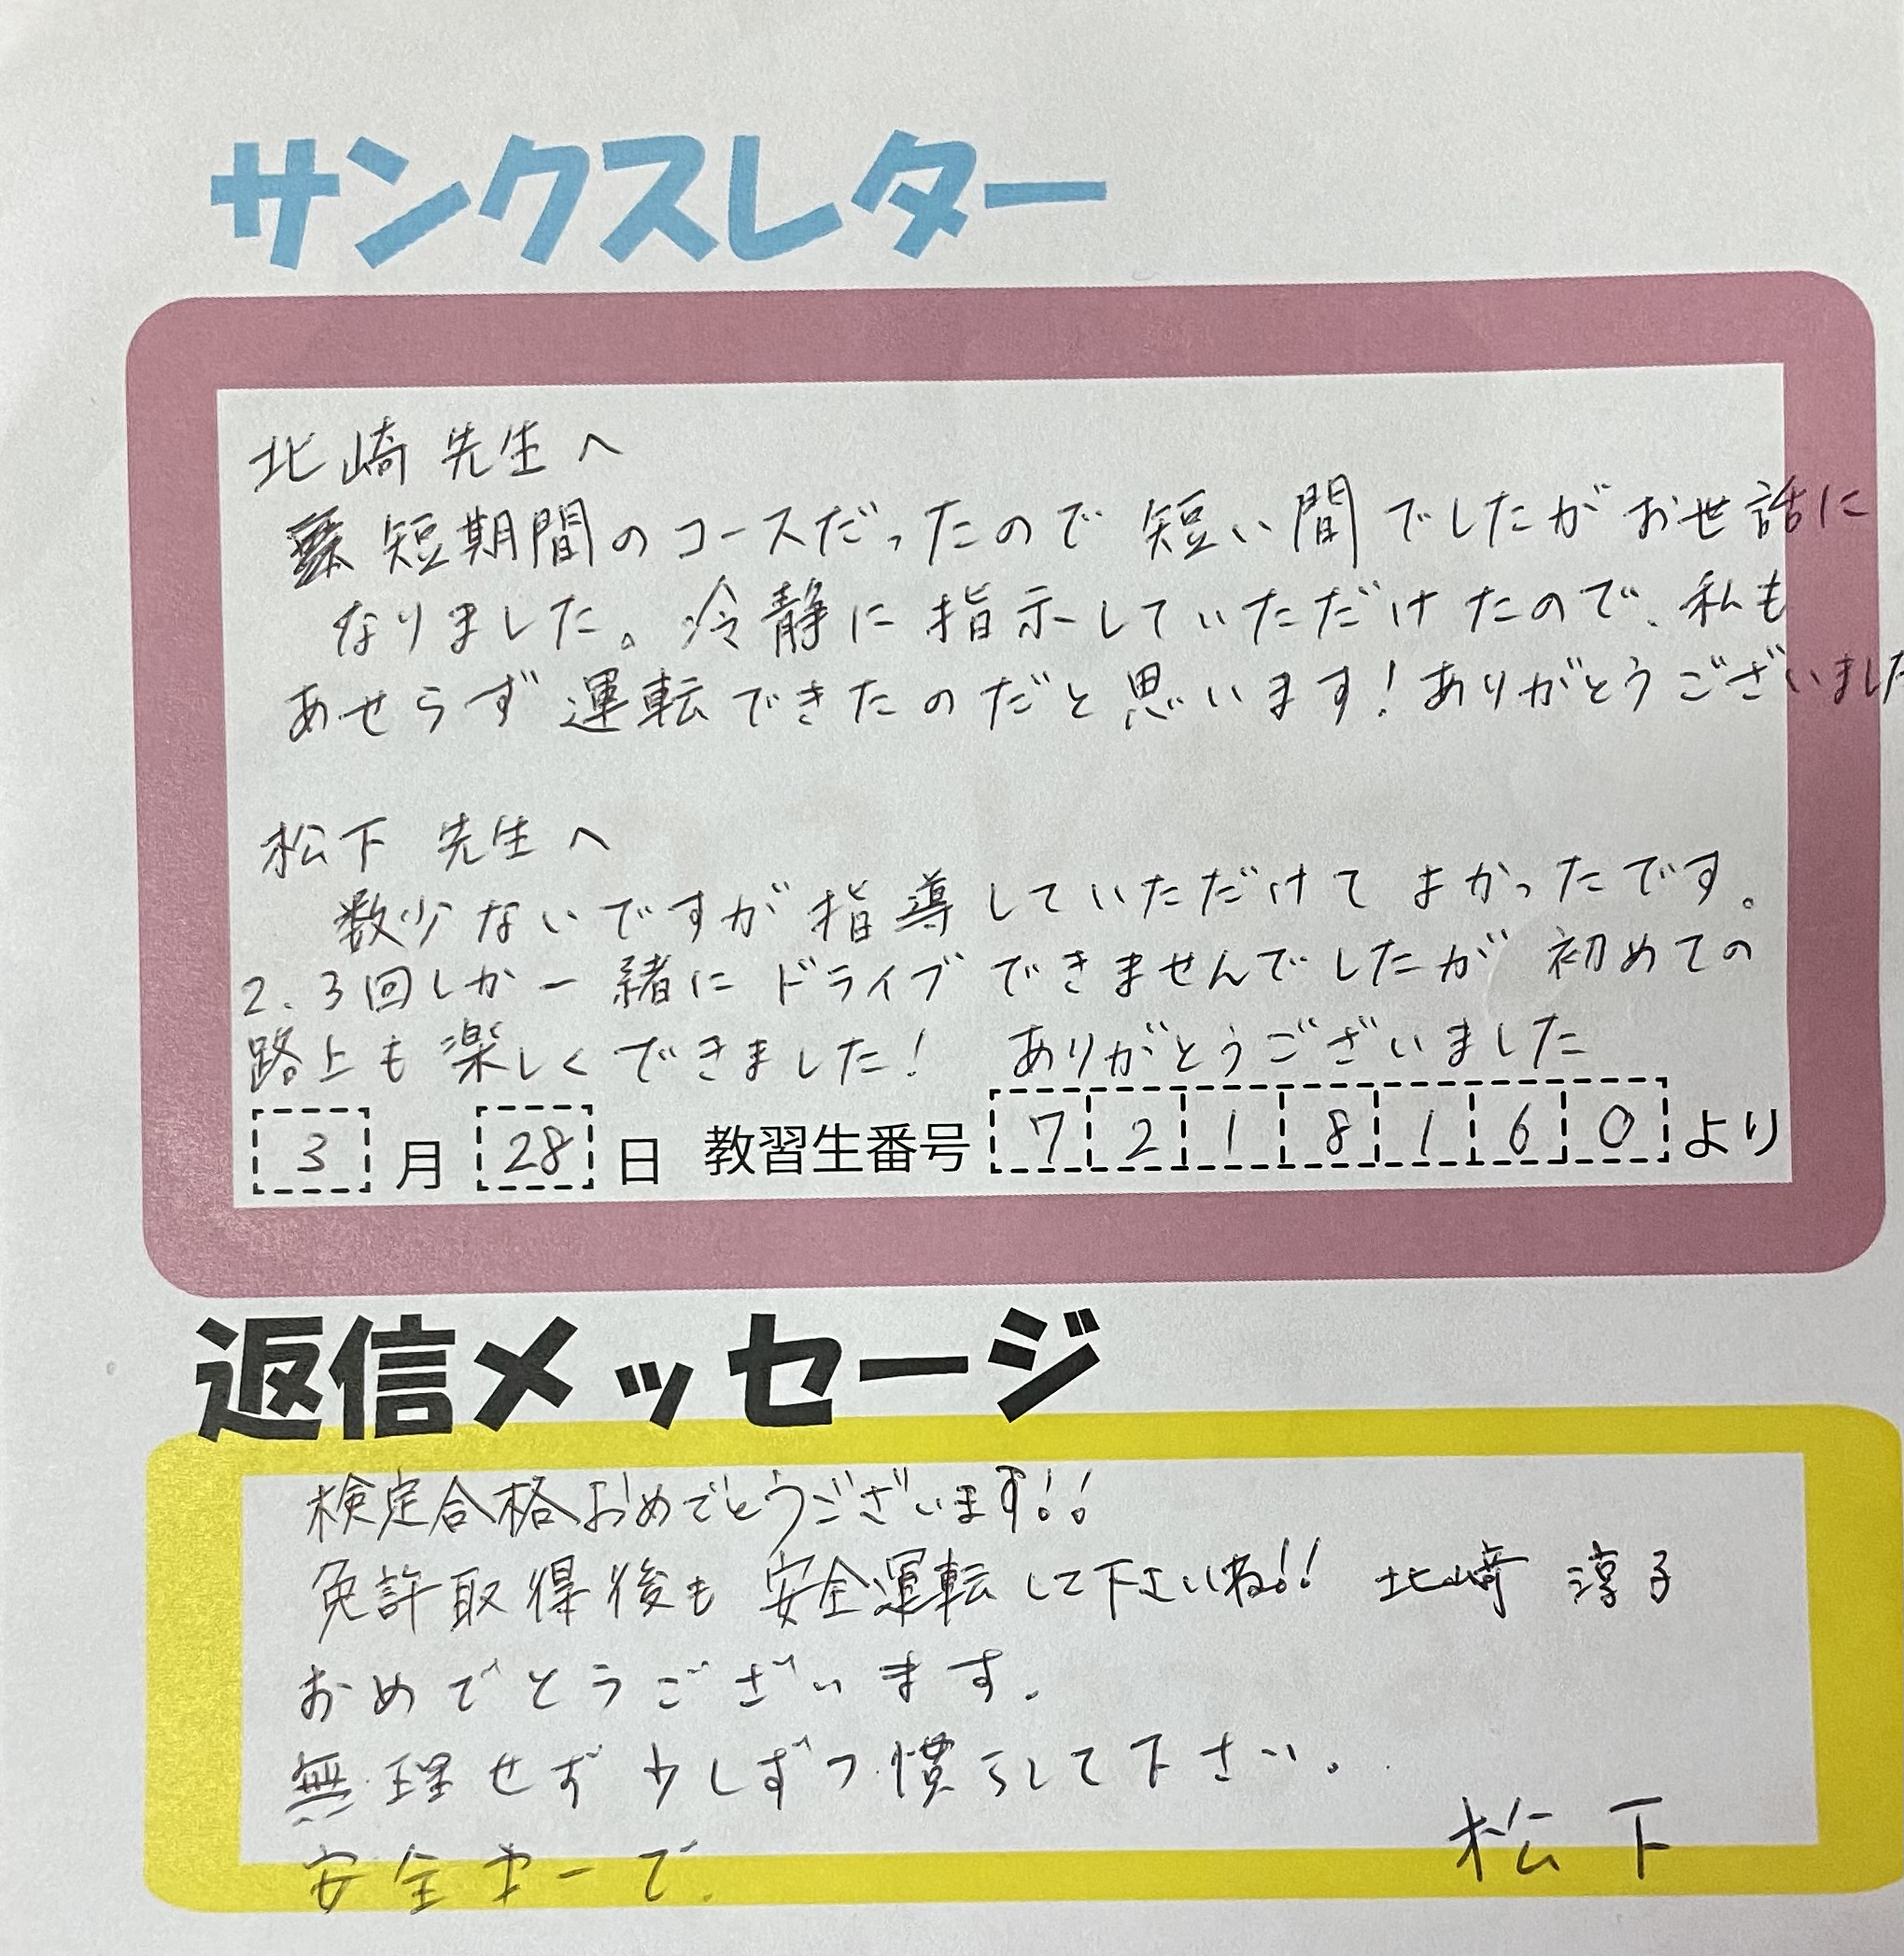 サンクスレター
北崎先生へ
短期間のコースだったので短い間でしたがお世話に
なりました。冷静に指示していただけたので、私も
あせらず運転できたのだと思います！ありがとうございました
松下先生へ
数少ないですが指導していただけてよかったです。
2、3回しか一緒にドライブできませんでしたが初めての
路上も楽しくできました！ ありがとうございました
3月28日 教習生番号 7218160より
返信メッセージ
検定合格おめでとうございます!!
免許取得後も安全運転して下さいね!! 北崎 淳子
おめでとうございます。
無理せず少しずつ慣らして下さい。
安全第一で。
松下